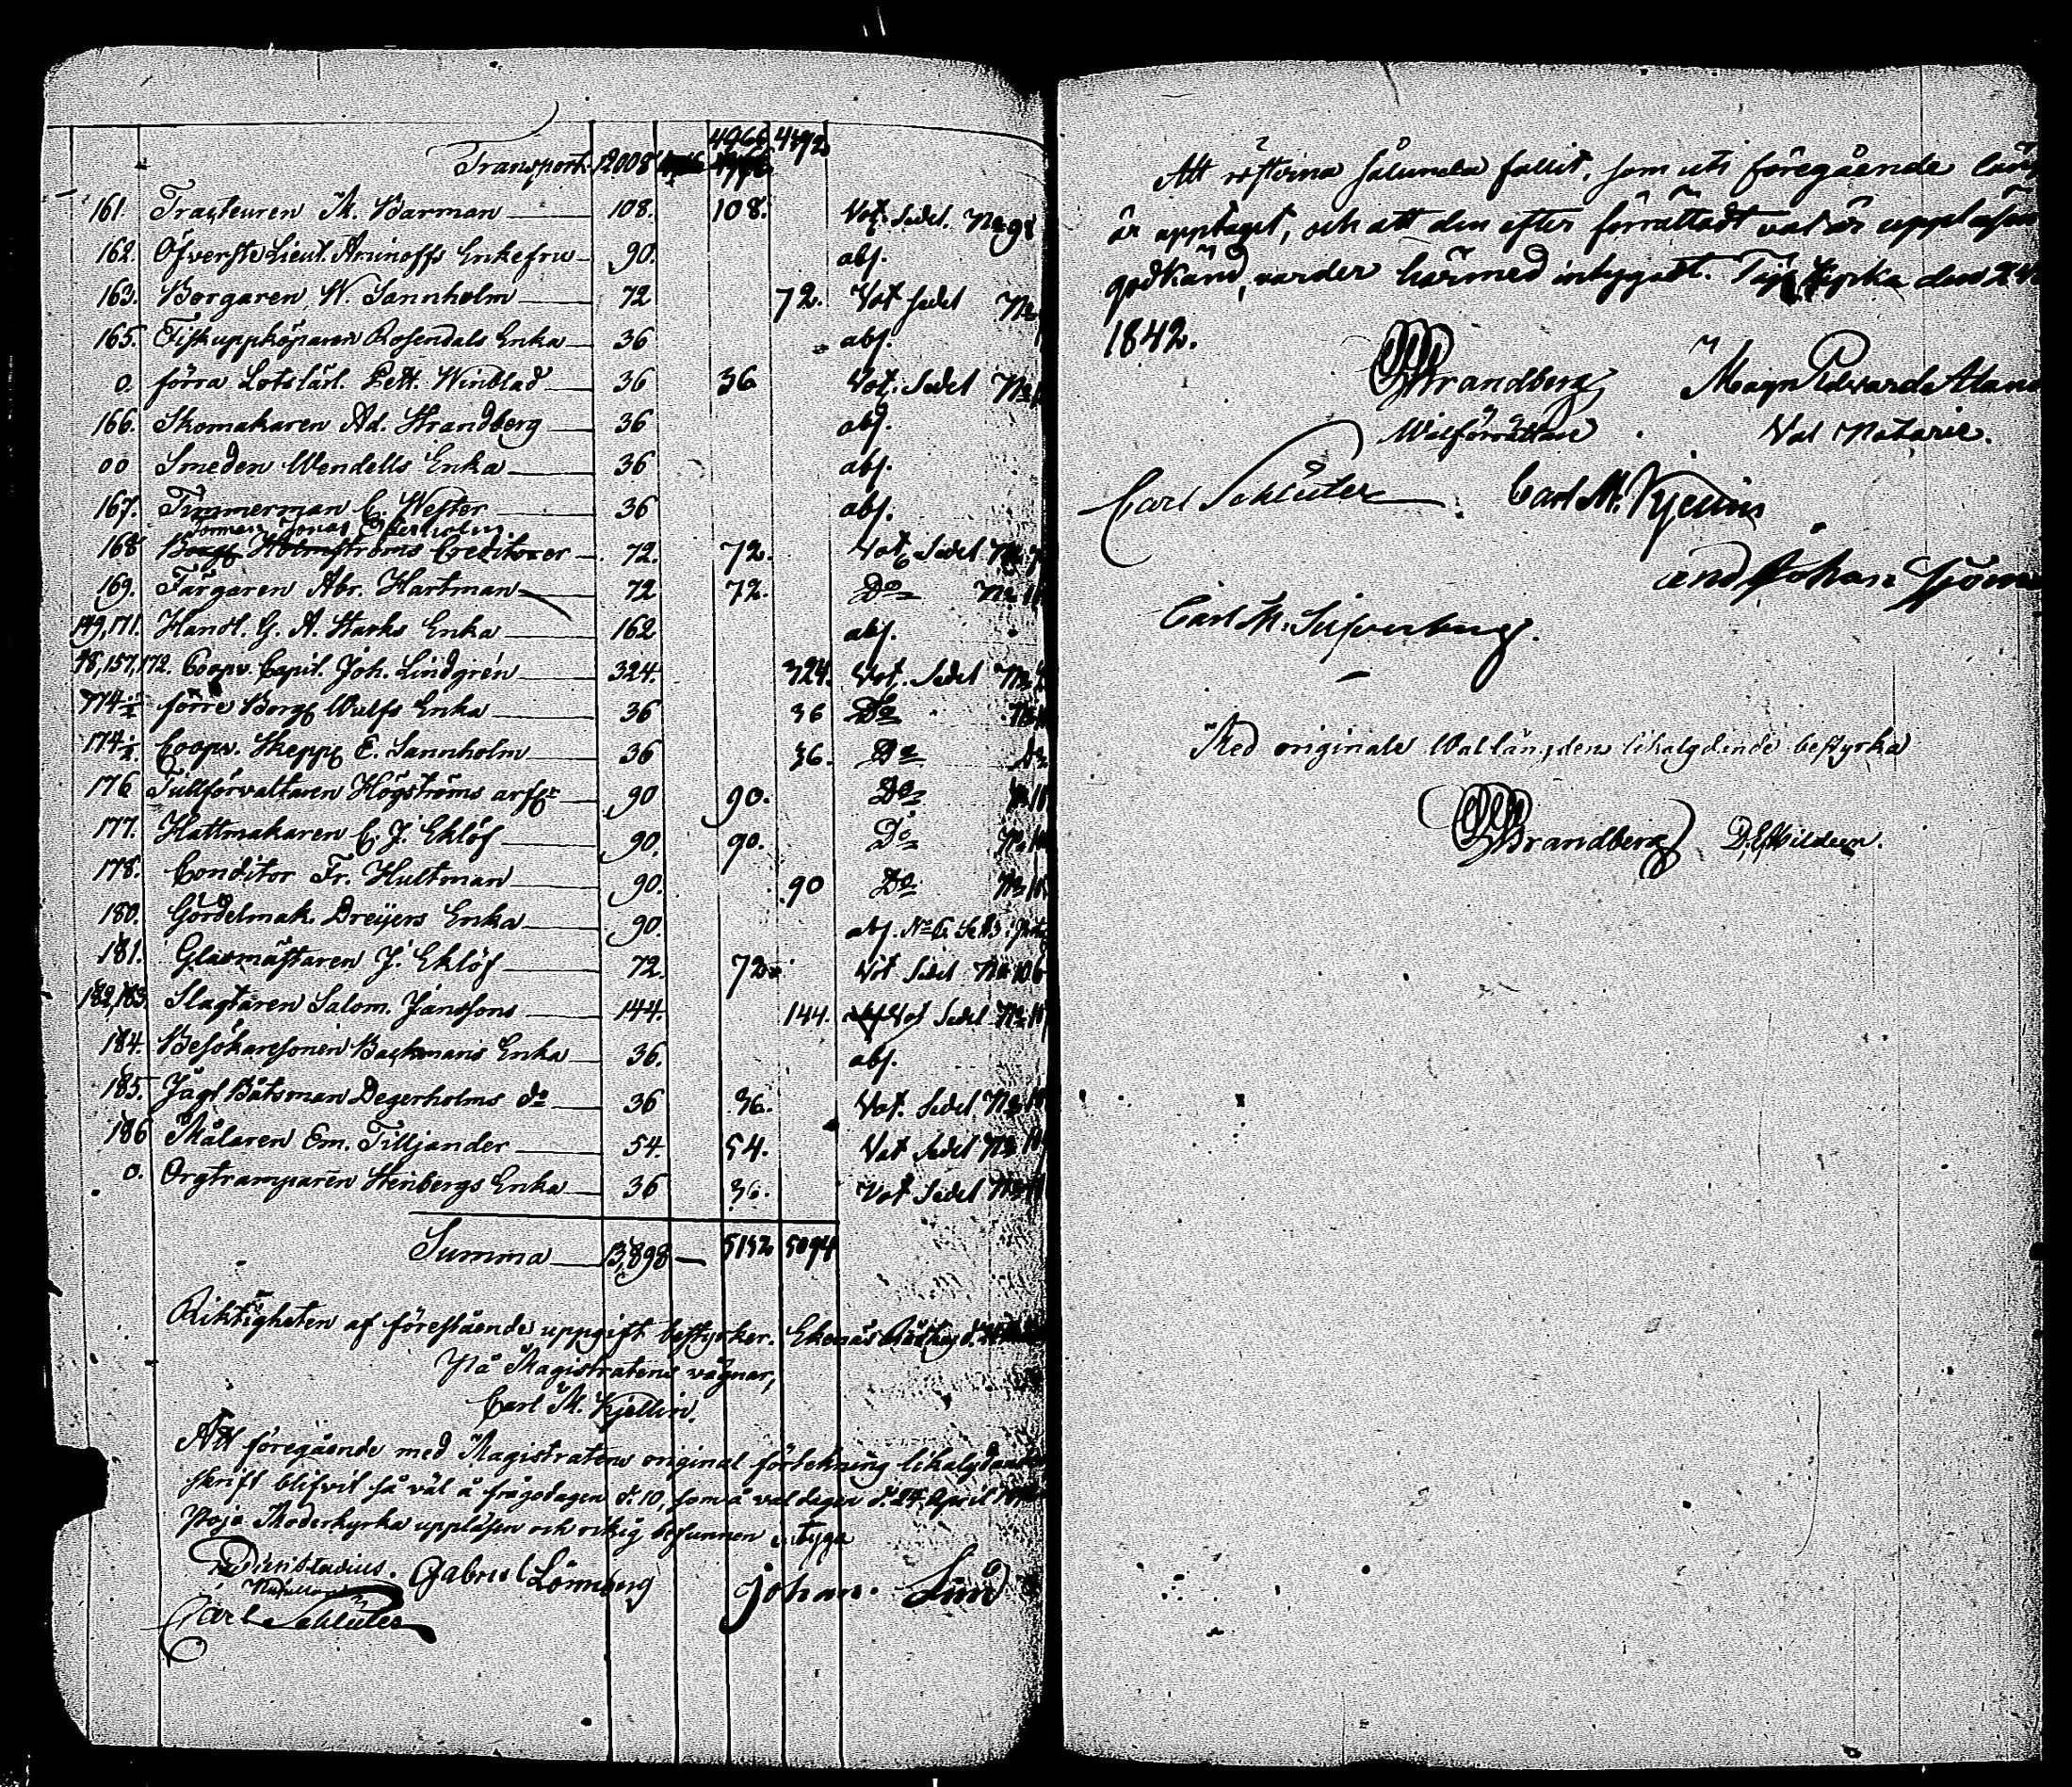 4966 4492
Transport 12008
161. Tracteuren M. Barman 108. 108. Vot. Sedel. No 98
162. Öfverste Lieut. Arinoffs Enkefru 90. abs.
163. Borgaren W. Sannholm 72 72. Vot Sedel No
165. Fiskuppköparen Rosendals Enka 36 abs.
0. förra Lotslärl. Pett. Winblad 36 36 Vot. Sedel No
166. Skomakaren Ad. Strandberg 36 abs.
00 Smeden Wendells Enka 36 abs.
167. Timmerman C. Wester 36 abs.
Jonas
168 Borg Holmströms Creditorer 72. 72. Vot. Sedel No
169. Färgaren Abr. Hartman 72 72. Do No
149, 171. Handl. G. A. Starks Enka 162 abs.
98, 157, 172. Coopv. Capit. Joh. Lindgrén 324. 324. Vot. Sedel No
174 ½ förre Borg Wulfs Enka 36 36 Do
174 ½ Coopv. Skepp E. Sannholm 36 36. Do Do
176 Tullförvaltaren Högströms arf 90 90. Do
177. Hattmakaren C. J. Eklöf 90. 90. Do No
178. Conditor Fr. Hultman 90. 90 Do No
180. Gördelmak. Dreijers Enka 90. abs. No 6.
181. Glasmästaren J. Eklöf 72. 72. Vot Sedel No 106
182, 183 Slagtaren Salom. Janssons 144. 144. Vot Sedel No
184. Besökaresonen Backmans Enka 36. abs.
185. Jägl Båtsman Degerholms do 36 36. Vot. Sedel No
186 Målaren Em. Tilljander 54 54. Vot Sedel No
0. Orgtramparen Stenbergs Enka 36 36. Vot Sedel No
Summa 13,898 — 5152 5094
Riktigheten af förestående uppgift bestyrker. Ekenäs
På Magistratens vägnar,
Carl M. Kjellin.
Att föregående med Magistratens original förtekning likalydande
skrift blifvit så väl å frågodagen d. 10, som å valdagen d. 24 April
Pojo Moderkyrka uppläsen och riktig befunnen intyga
Gabriel Lönnberg Johan Lind
Carl Schlüter
Att rösterna sålunda fallit, som uti föregående
är upptaget, och att den efter förrättadt val är uppläsen
godkänd, varder härmed intygadt. kyrka den 24
1842.
Strandberg Magn Edvard Alan
Walförrättan Val Notarie.
Carl Schlüter Carl M. Kjellin
Johan
Carl M.
Med originale Vallängden likalydande bestyrka
Strandberg